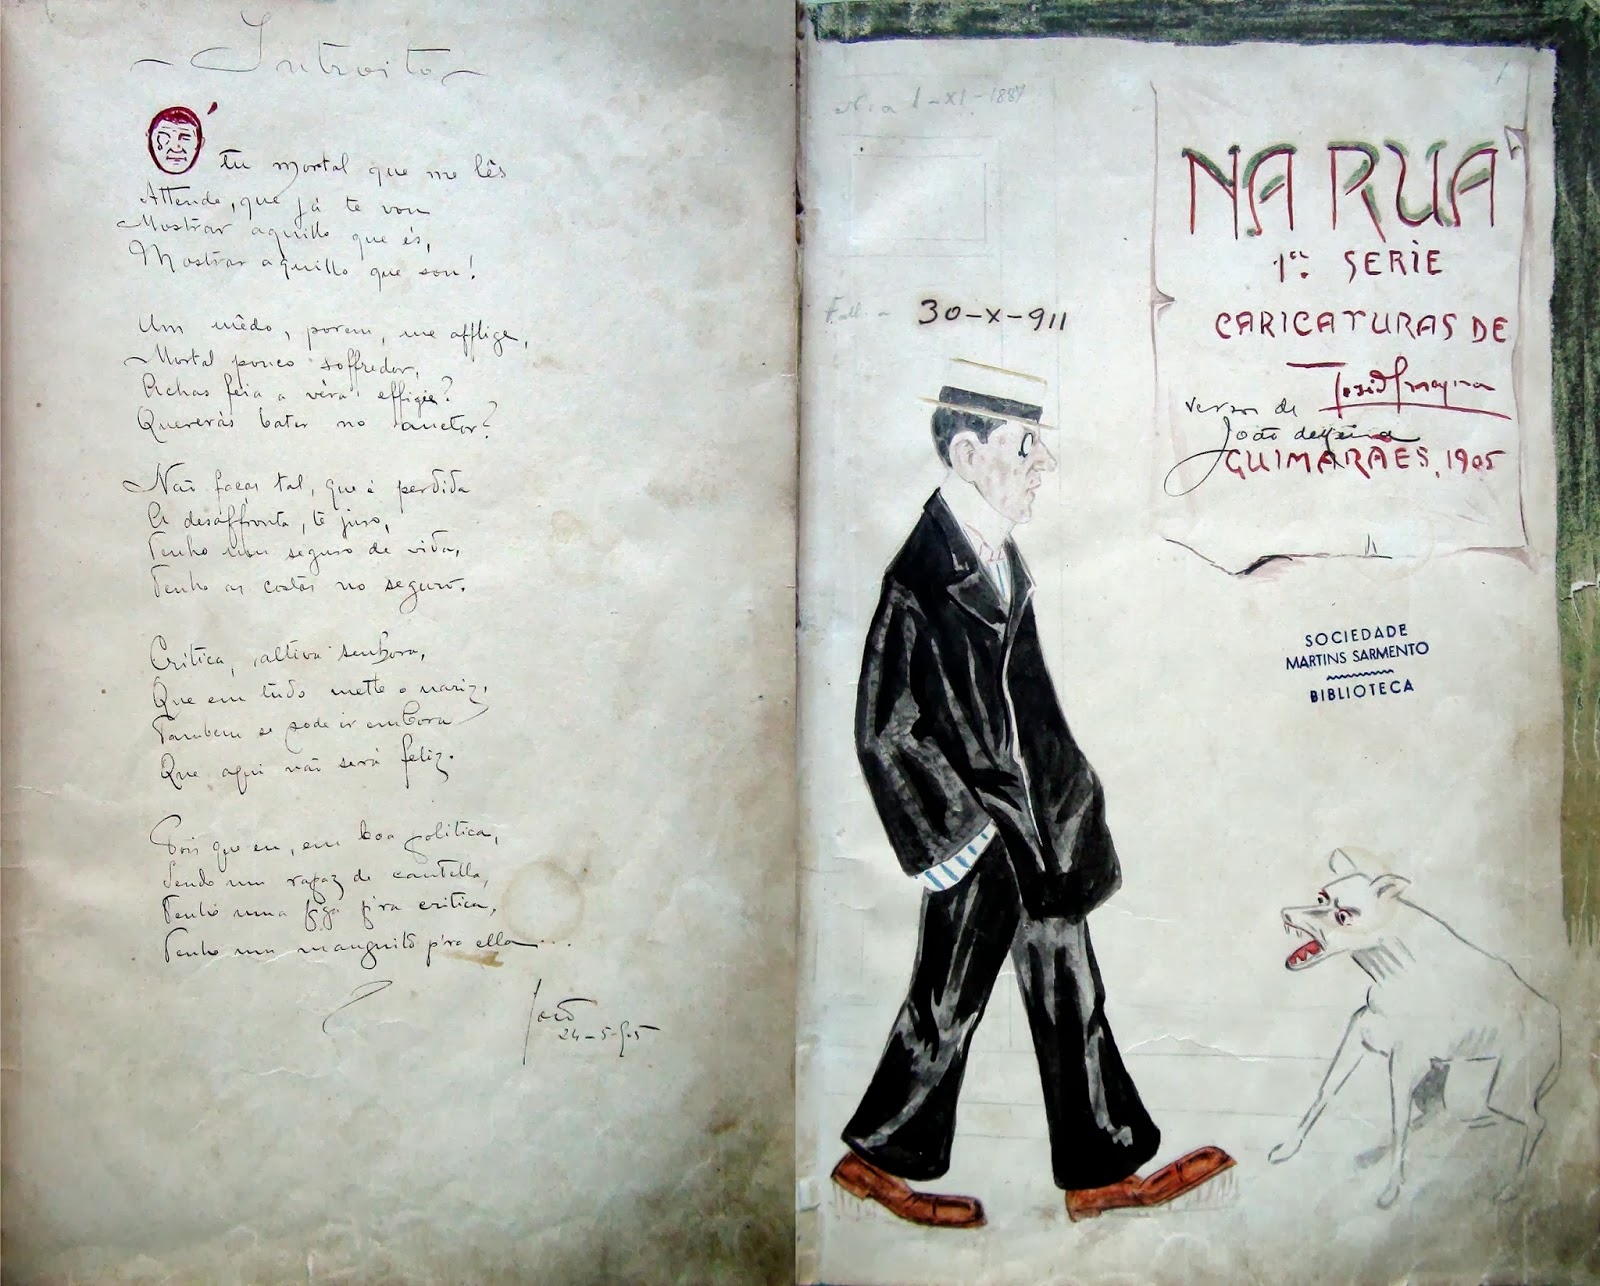 Introito
Ó tu mortal que me lês
Attende, que já te vou
Mostrar aquillo que és,
Mostrar aquillo que sou!
Um mêdo, porem, me afflige,
Mortal pouco soffredor,
Achas feia a véra effigie?
Quererás bater no auctor?
Não faças tal, que é perdida
A desaffronta, te juro,
Tenho um seguro de vida,
Tenho as costas no seguro.
Critica, altiva senhora,
Que em tudo mette o nariz,
Tambem se pode ir embora
Que aqui não será feliz.
Pois que eu, em boa politica,
Sendo um rapaz de cautella,
Tenho uma figa p'ra critica,
Tenho um manguito p'ra ella...
João
24-5-905
1-XI-1887
Fall.
30-X-911
NA RUA
1ª. SERIE
CARICATURAS DE
versos de
João de Meira
GUIMARÃES, 1905
SOCIEDADE
MARTINS SARMENTO
BIBLIOTECA